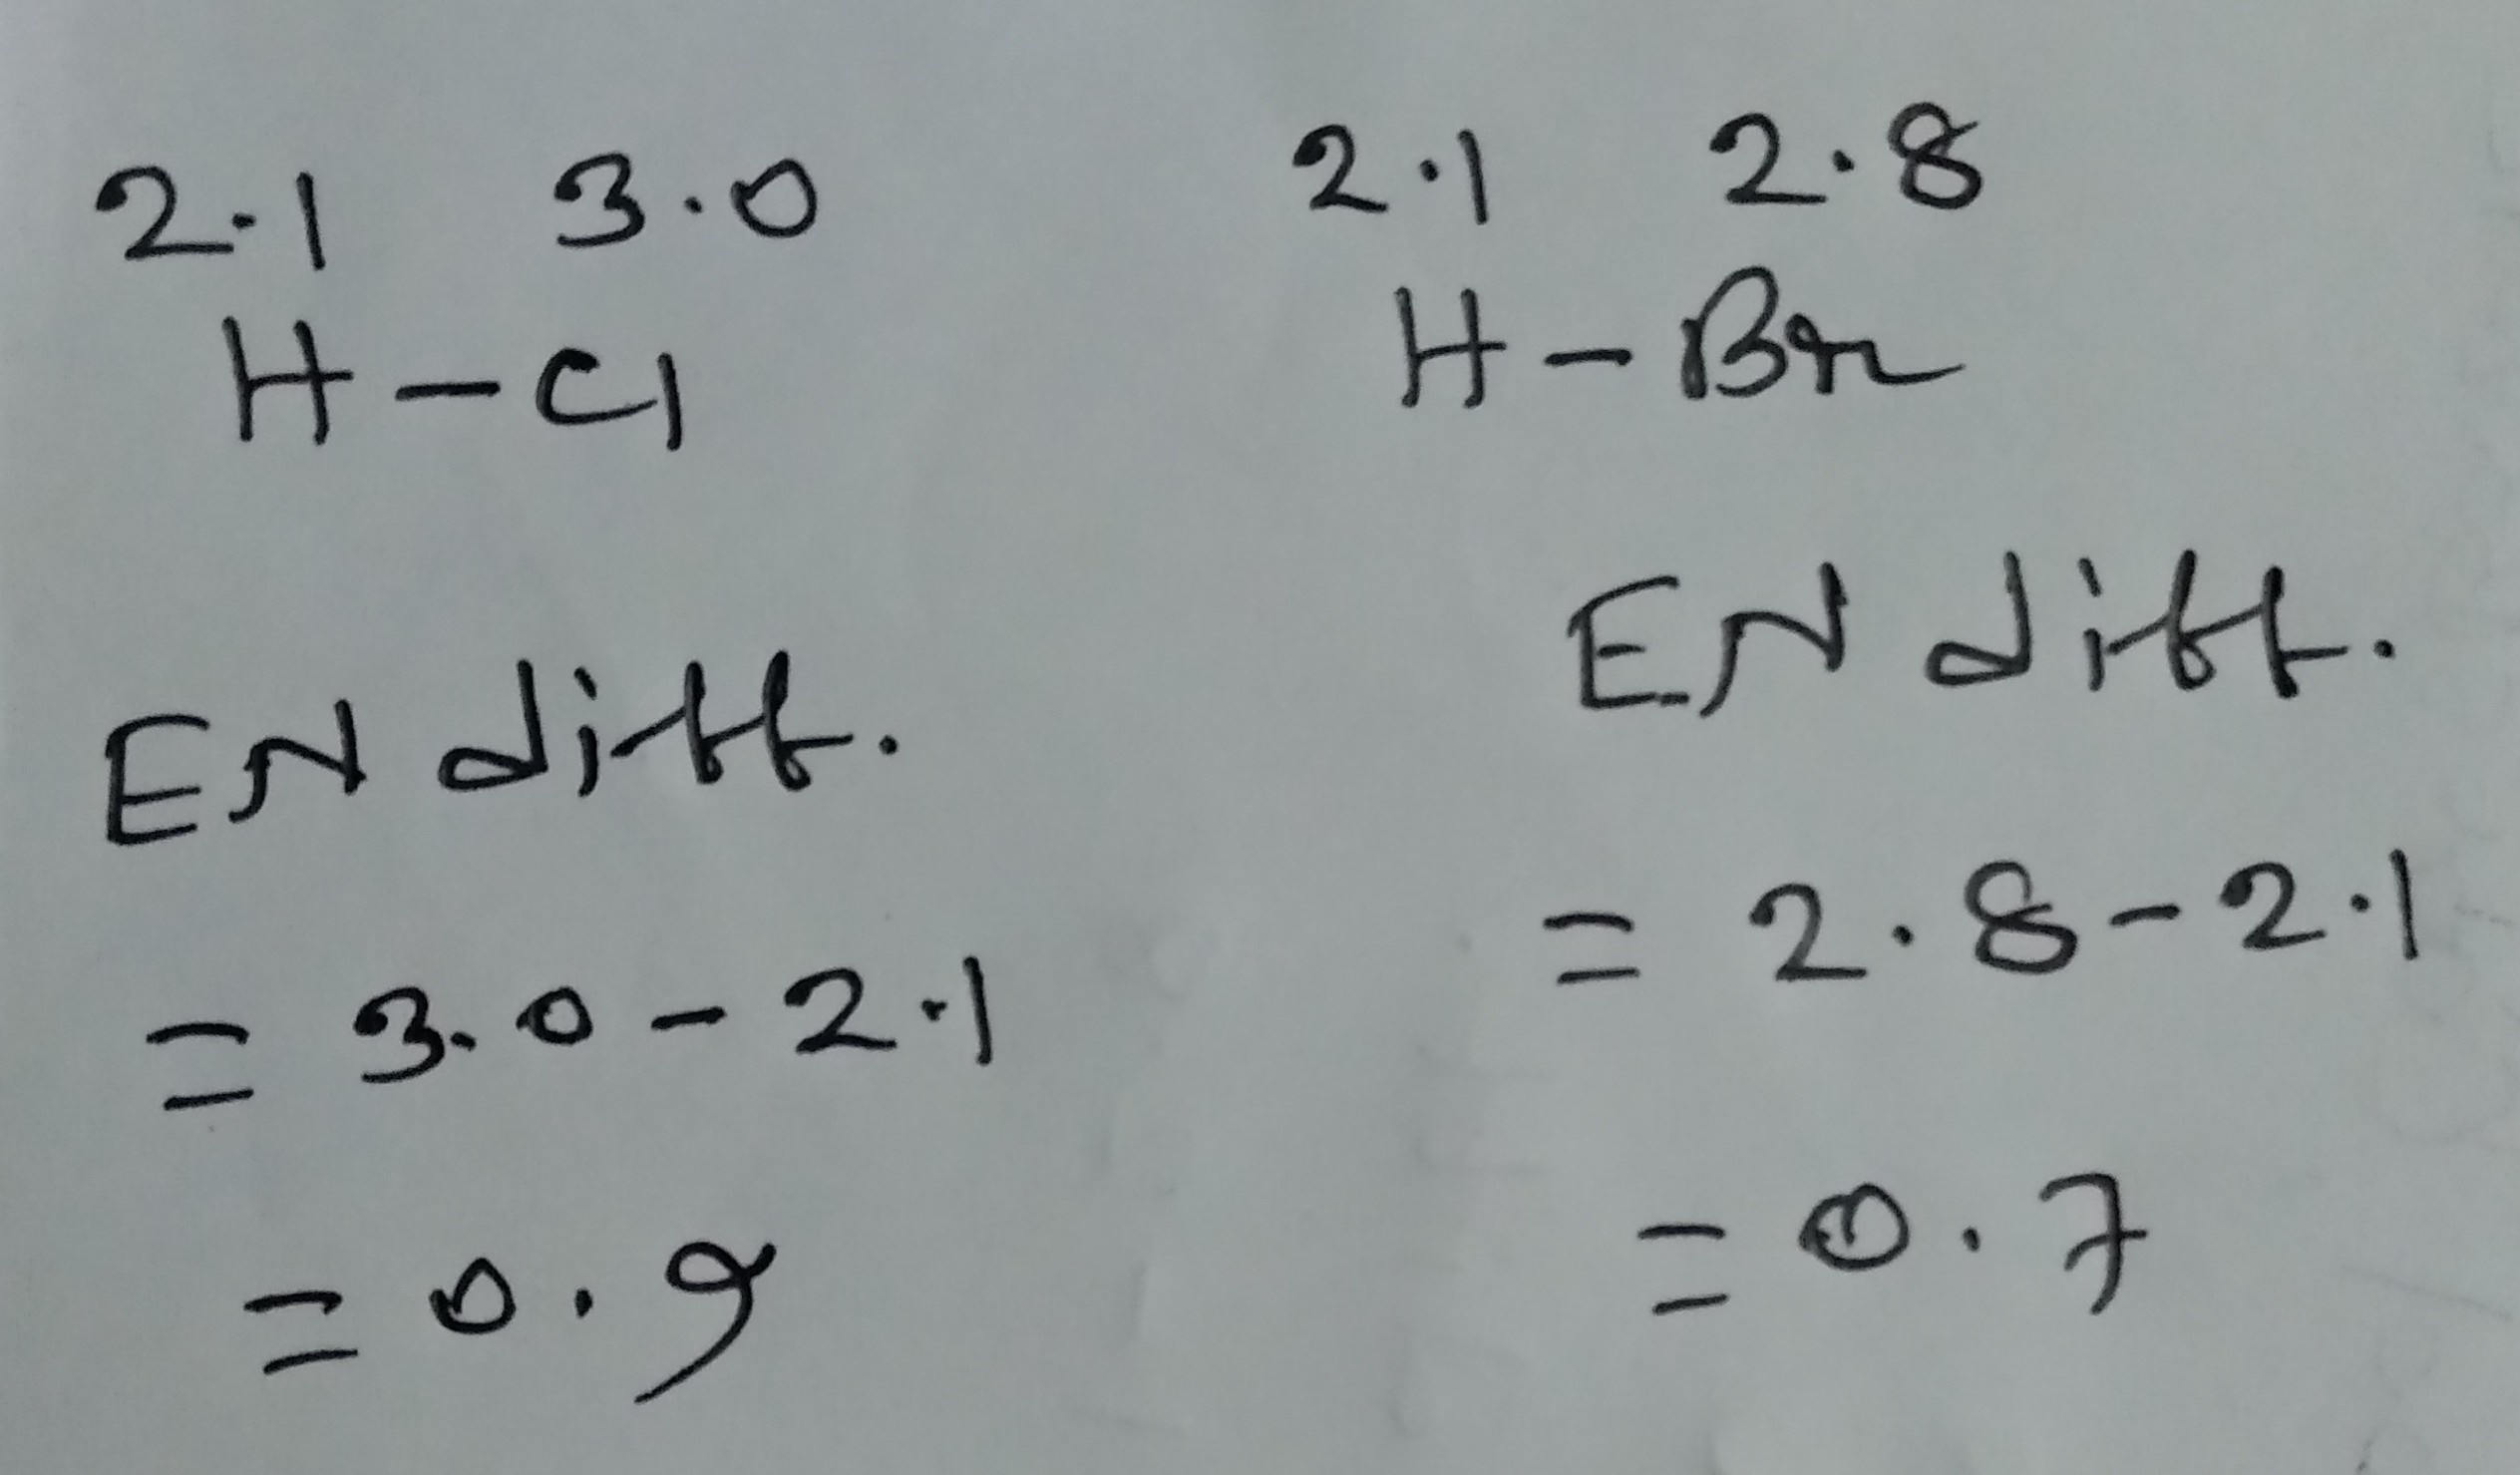 2.1 3.0
H-Cl
EN diff.
= 3.0 - 2.1
= 0.9
2.1 2.8
H-Br
EN diff.
= 2.8 - 2.1
= 0.7